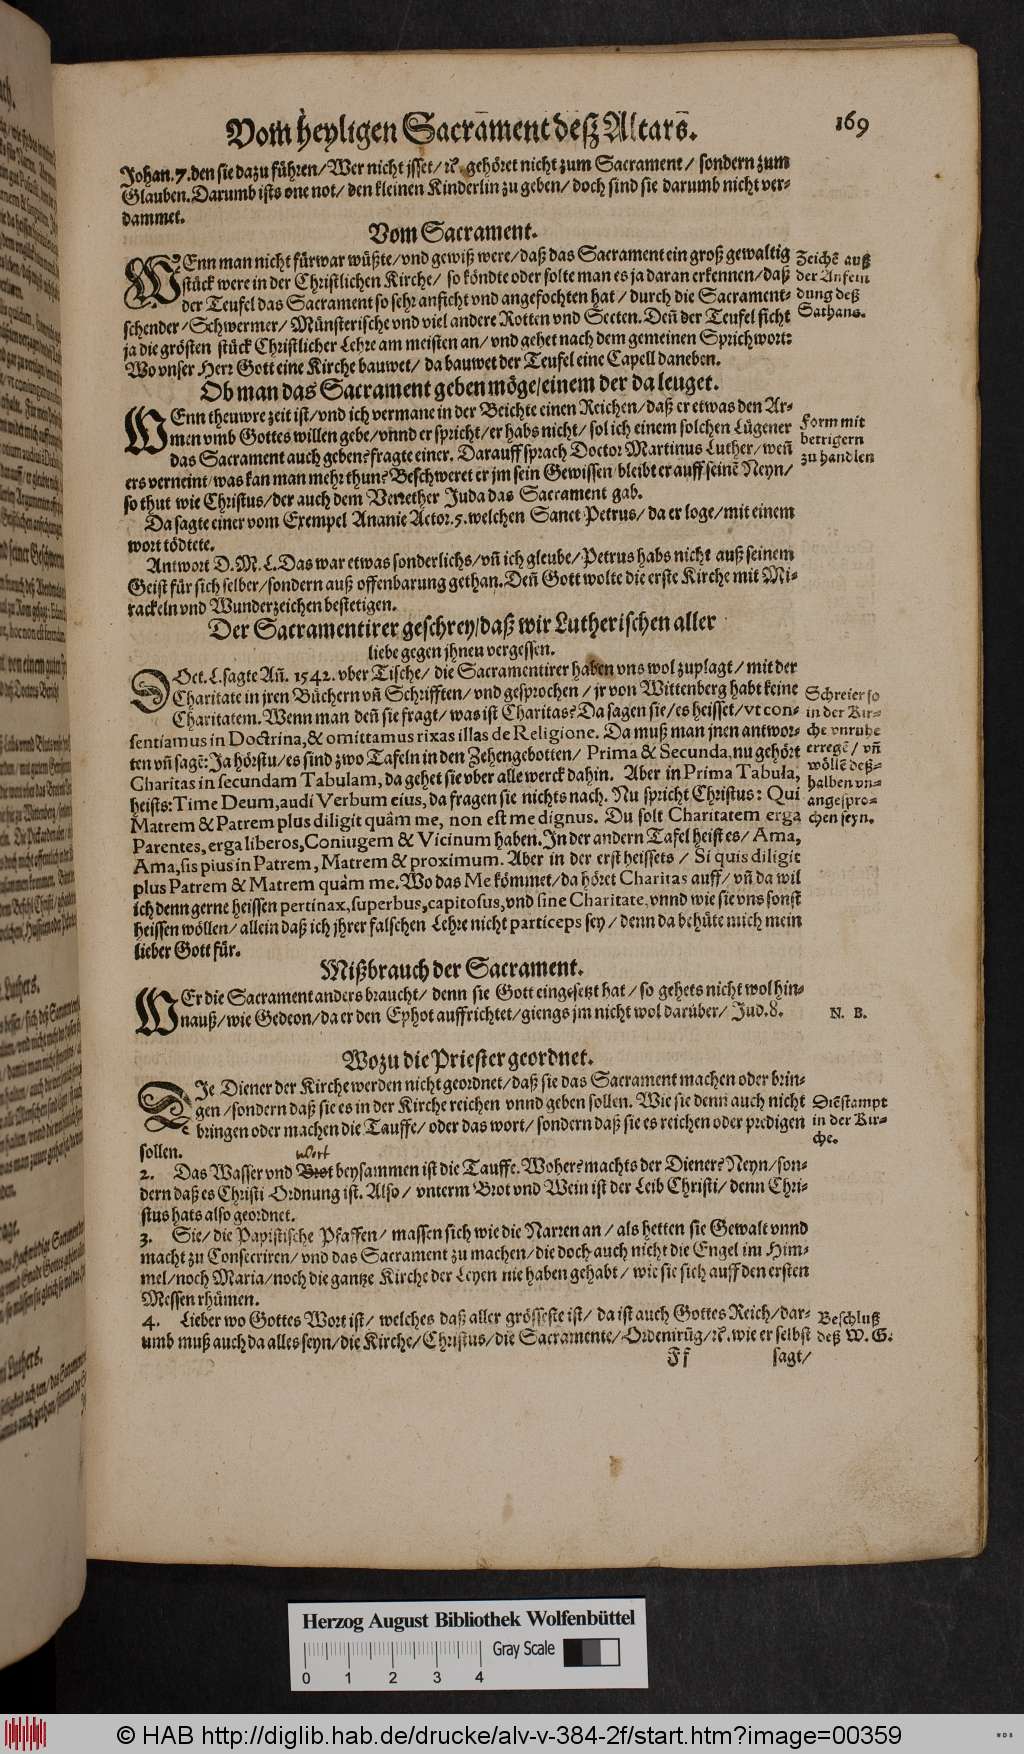 Vom heyligen Sacrament deß Altars.
169
Johan. 7. den sie dazu führen/ Wer nicht jsset/ ꝛc. gehöret nicht zum Sacrament/ sondern zum
Glauben. Darumb ists one not/ den kleinen Kinderlin zu geben/ doch sind sie darumb nicht ver-
dammet.
Vom Sacrament.
WEnn man nicht fürwar wüßte/ vnd gewiß were/ daß das Sacrament ein groß gewaltig
stück were in der Christlichen Kirche/ so köndte oder solte man es ja daran erkennen/ daß
der Teufel das Sacrament so sehr anficht vnd angefochten hat/ durch die Sacrament-
schender/ Schwermer/ Münsterische vnd viel andere Rotten vnd Secten. Deñ der Teufel ficht
ja die grösten stück Christlicher Lehre am meisten an/ vnd gehet nach dem gemeinen Sprichwort:
Wo vnser Herr Gott eine Kirche bauwet/ da bauwet der Teufel eine Capell daneben.
Zeichē auß
der Anfein
dung deß
Sathans.
Ob man das Sacrament geben möge/ einem der da leuget.
WEnn theuwre zeit ist/ vnd ich vermane in der Beichte einen Reichen/ daß er etwas den Ar-
men vmb Gottes willen gebe/ vnnd er spricht/ er habs nicht/ sol ich einem solchen Lügener
das Sacrament auch geben? fragte einer. Darauff sprach Doctor Martinus Luther/ weñ
ers verneint/ was kan man mehr thun? Beschweret er jm sein Gewissen bleibt er auff seinē Neyn/
so thut wie Christus/ der auch dem Verrether Juda das Sacrament gab.
Form mit
betrigern
zu handlen
Da sagte einer vom Exempel Ananie Actor. 5. welchen Sanct Petrus/ da er loge/ mit einem
wort tödtete.
Antwort D. M. L. Das war etwas sonderlichs/ vñ ich gleube/ Petrus habs nicht auß seinem
Geist für sich selber/ sondern auß offenbarung gethan. Deñ Gott wolte die erste Kirche mit Mi-
rackeln vnd Wunderzeichen bestetigen.
Der Sacramentirer geschrey/ daß wir Lutherischen aller
liebe gegen jhnen vergessen.
DOct. L. sagte Añ. 1542. vber Tische/ die Sacramentirer haben vns wol zuplagt/ mit der
Charitate in jren Büchern vñ Schrifften/ vnd gesprochen/ jr von Wittenberg habt keine
Charitatem. Wenn man deñ sie fragt/ was ist Charitas? Da sagen sie/ es heisset/ vt con-
sentiamus in Doctrina, & omittamus rixas illas de Religione. Da muß man jnen antwor-
ten vñ sagē: Ja hörstu/ es sind zwo Tafeln in den Zehengebotten/ Prima & Secunda, nu gehört
Charitas in secundam Tabulam, da gehet sie vber alle werck dahin. Aber in Prima Tabula,
heists: Time Deum, audi Verbum eius, da fragen sie nichts nach. Nu spricht Christus: Qui
Matrem & Patrem plus diligit quàm me, non est me dignus. Du solt Charitatem erga
Parentes, erga liberos, Coniugem & Vicinum haben. In der andern Tafel heist es/ Ama,
Ama, sis pius in Patrem, Matrem & proximum. Aber in der erst heissets/ Si quis diligit
plus Patrem & Matrem quàm me. Wo das Me kömmet/ da höret Charitas auff/ vñ da wil
ich denn gerne heissen pertinax, superbus, capitosus, vnd sine Charitate, vnnd wie sie vns sonst
heissen wöllen/ allein daß ich jhrer falschen Lehre nicht particeps sey/ denn da behüte mich mein
lieber Gott für.
Schreier so
in der Kir-
che vnruhe
erregē/ vñ
wöllē deß-
halben vn-
angespro-
chen seyn.
Mißbrauch der Sacrament.
WEr die Sacrament anders braucht/ denn sie Gott eingesetzt hat/ so gehets nicht wol hin-
nauß/ wie Gedeon/ da er den Ephot auffrichtet/ giengs jm nicht wol darüber/ Jud. 8.
N. B.
Wozu die Priester geordnet.
DIe Diener der Kirche werden nicht geordnet/ daß sie das Sacrament machen oder brin-
gen/ sondern daß sie es in der Kirche reichen vnnd geben sollen. Wie sie denn auch nicht
bringen oder machen die Tauffe/ oder das wort/ sondern daß sie es reichen oder predigen
sollen.
Diēstampt
in der Kir-
che.
wort
2. Das Wasser vnd Brot beysammen ist die Tauffe. Woher? machts der Diener? Neyn/ son-
dern daß es Christi Ordnung ist. Also/ vnterm Brot vnd Wein ist der Leib Christi/ denn Chri-
stus hats also geordnet.
3. Sie/ die Papistische Pfaffen/ massen sich wie die Narren an/ als hetten sie Gewalt vnnd
macht zu Consecriren/ vnd das Sacrament zu machen/ die doch auch nicht die Engel im Him-
mel/ noch Maria/ noch die gantze Kirche der Leyen nie haben gehabt/ wie sie sich auff den ersten
Messen rhümen.
4. Lieber wo Gottes Wort ist/ welches daß aller grösseste ist/ da ist auch Gottes Reich/ dar-
umb muß auch da alles seyn/ die Kirche/ Christus/ die Sacramente/ Ordenirūg/ ꝛc. wie er selbst
Beschluß
deß W. G.
Ff
sagt/
Herzog August Bibliothek Wolfenbüttel
Gray Scale
0 1 2 3 4
© HAB http://diglib.hab.de/drucke/alv-v-384-2f/start.htm?image=00359